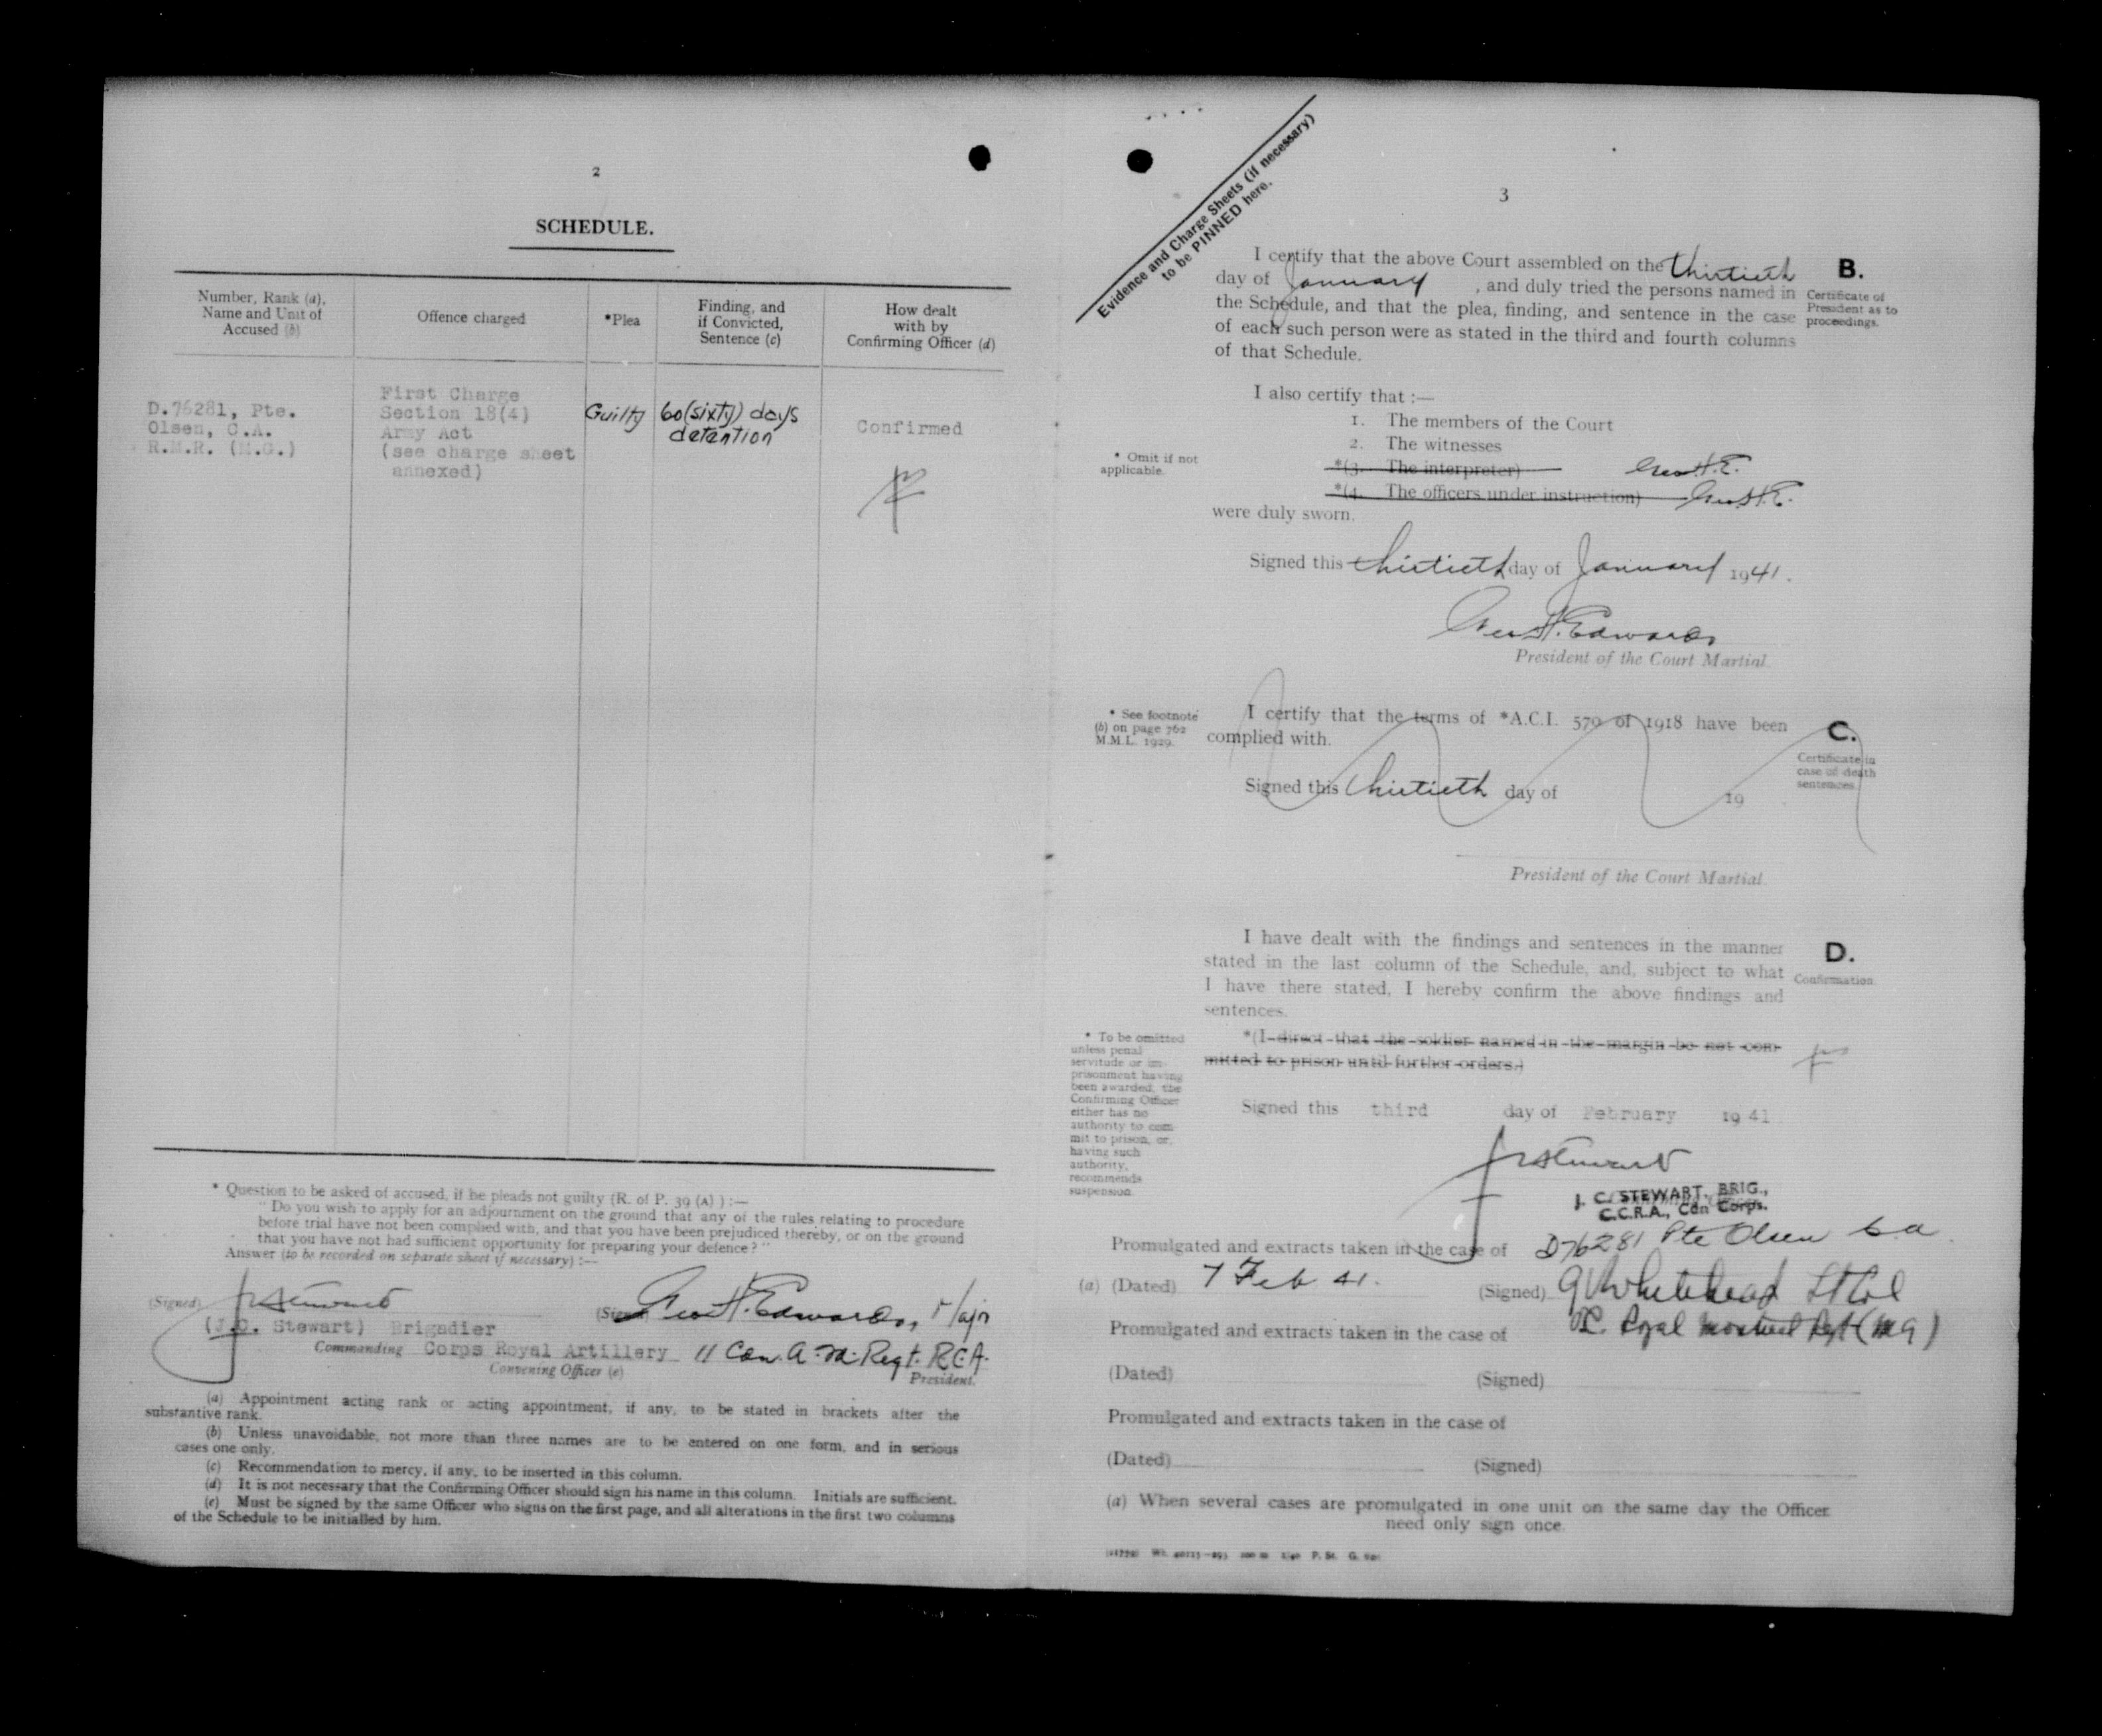 2
SCHEDULE.
Number, Rank (a),
Name and Unit of
Accused (b)
Offence charged
*Plea
Finding, and
if Convicted,
Sentence (c)
How dealt
with by
Confirming Officer (d)
D.76281, Pte.
Olsen, C.A.
R.M.R. (M.G.)
First Charge
Section 18(4)
Army Act
(see charge sheet
annexed)
Guilty
60 (sixty) days
detention
Confirmed
* Question to be asked of accused, if he pleads not guilty (R. of P. 39 (A) ) :—
" Do you wish to apply for an adjournment on the ground that any of the rules relating to procedure
before trial have not been complied with, and that you have been prejudiced thereby, or on the ground
that you have not had sufficient opportunity for preparing your defence ? "
Answer (to be recorded on separate sheet if necessary) :—
(Signed) JCStewart
(J.C. Stewart) Brigadier
Commanding Corps Royal Artillery
Convening Officer (e)
(Signed) Geo H. Edwards, Major
11 Can. A. Regt. RCA.
President.
(a) Appointment acting rank or acting appointment, if any, to be stated in brackets after the
substantive rank.
(b) Unless unavoidable, not more than three names are to be entered on one form, and in serious
cases one only.
(c) Recommendation to mercy, if any, to be inserted in this column.
(d) It is not necessary that the Confirming Officer should sign his name in this column. Initials are sufficient.
(e) Must be signed by the same Officer who signs on the first page, and all alterations in the first two columns
of the Schedule to be initialled by him.
Evidence and Charge Sheets (if necessary)
to be PINNED here.
3
I certify that the above Court assembled on the thirtieth
day of January , and duly tried the persons named in
the Schedule, and that the plea, finding, and sentence in the case
of each such person were as stated in the third and fourth columns
of that Schedule.
B.
Certificate of
President as to
proceedings.
I also certify that :—
1. The members of the Court
2. The witnesses
* Omit if not
applicable.
*(3. The interpreter) Geo.H.E.
*(4. The officers under instruction) Geo.H.E.
were duly sworn.
Signed this thirtieth day of January 1941.
Geo H. Edwards
President of the Court Martial.
* See footnote
(b) on page 762
M.M.L. 1929.
I certify that the terms of *A.C.I. 579 of 1918 have been
complied with.
C.
Certificate in
case of death
sentences.
Signed this thirtieth day of 19
President of the Court Martial.
I have dealt with the findings and sentences in the manner
stated in the last column of the Schedule, and, subject to what
I have there stated, I hereby confirm the above findings and
sentences.
D.
Confirmation.
* To be omitted
unless penal
servitude or im-
prisonment having
been awarded, the
Confirming Officer
either has no
authority to com-
mit to prison, or,
having such
authority,
recommends
suspension.
*(I direct that the soldier named in the margin be not com-
mitted to prison until further orders.)
Signed this third day of February 1941.
JCStewart
J. C. STEWART, BRIG.,
C.C.R.A., Cdn Corps.
Promulgated and extracts taken in the case of D76281 Pte Olsen C.A.
(a) (Dated) 7 Feb 41. (Signed) Whitehead Lt Col
OC. Royal Montreal Regt (MG)
Promulgated and extracts taken in the case of
(Dated) (Signed)
Promulgated and extracts taken in the case of
(Dated) (Signed)
(a) When several cases are promulgated in one unit on the same day the Officer
need only sign once.